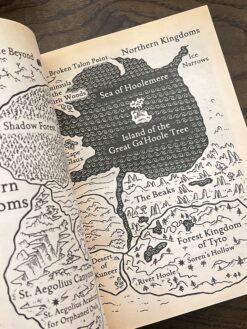 e Beyond
Broken Talon Point
Northern Kingdoms
Ice
Narrows
the
Woods
Sea of Hoolemere
Shadow Forest
Island of the
Great Ga'Hoole Tree
ern
oms
The Beaks
Forest Kingdom
of Tyto
Desert
of
Kuneer
River Hoole
Soren's Hollow
St. Aegolius Canyon
St. Aegolius Academy
for Orphaned Owls